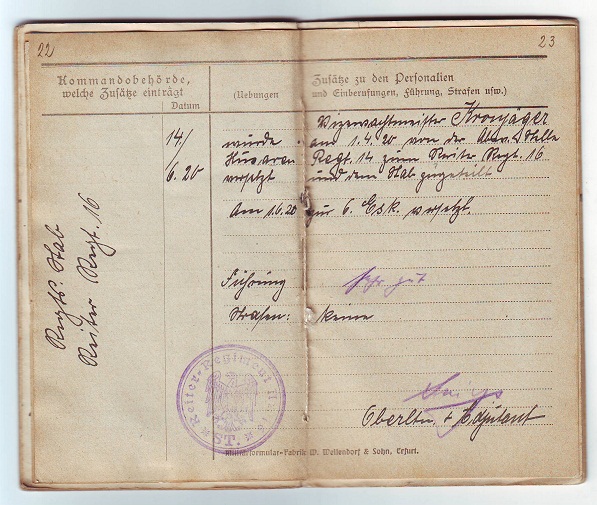 22
23
Kommandobehörde,
welche Zusätze einträgt
Datum
(Uebungen
Zusätze zu den Personalien
und Einberufungen, Führung, Strafen usw.)
Vizewachtmeister Kronjäger
14/
6.20
wurde am 1.4.20 von der Abw. Stelle
Husaren Regt. 14 zum Reiter Regt. 16
versetzt und dem Stab zugeteilt.
Am 1.6.20 zur 6. Esk. versetzt.
Regts. Stab
Reiter Regt. 16
Führung sehr gut
Strafen: keine
Oberltn. + Adjutant
Reiter-Regiment
ST.
Militärformular-Fabrik W. Wellendorf & Sohn, Erfurt.